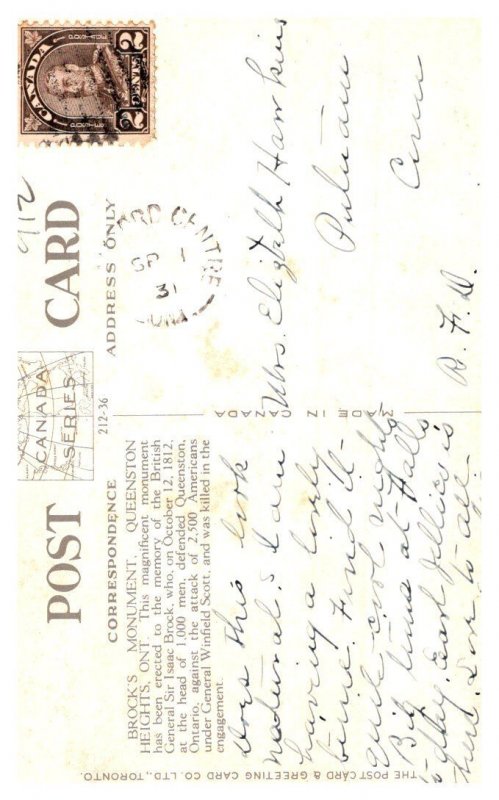 CANADA
POSTES POSTAGE
2 CENTS 2
9/12
POST CARD
CANADA
SERIES
212-36
CORRESPONDENCE
ADDRESS ONLY
BROCK'S MONUMENT, QUEENSTON
HEIGHTS, ONT. This magnificent monument
has been erected to the memory of the British
General Sir Isaac Brock, who, on October 12, 1812,
at the head of 1,000 men, defended Queenston,
Ontario, against the attack of 2,500 Americans
under General Winfield Scott, and was killed in the
engagement.
CENTRE
SP 1
31
Does this look
natural? I am
having a lovely
time. Find it
quite cool nights
Big time at Falls
today. Earl Jillies is
here. Love to all.
MADE IN CANADA
Mrs. Elizabeth Hawkins
Putnam
Conn
R. F. D.
THE POST CARD & GREETING CARD CO. LTD., TORONTO.